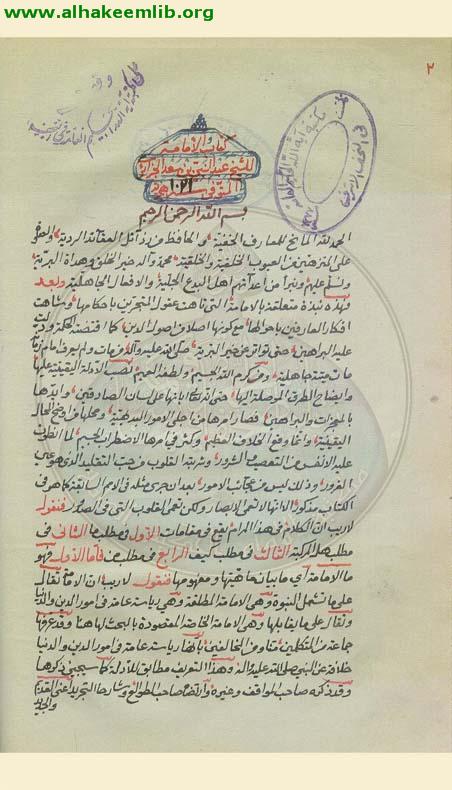 www.alhakeemlib.org
٢
كتاب الامامة
للشيخ عبد النبي بن سعد الجزائري
المتوفى سنة ١٠٢١ هجرية
بسم الله الرحمن الرحيم
الحمد لله المانح للمعارف الخفية والحافظ من رذائل العقائد الردية
على المنزهين عن العيوب الخلقية والخلقية محمد وآله خير الخلق وهداة البرية
ونسلم عليهم ونبرأ من اعدائهم اهل البدع الجلية والافعال الجاهلية وبعد
فهذه نبذة متعلقة بالامامة التي تاهت عقول المتحرين باحكامها
افكار العارفين باحوالها مع كونها اصلا من اصول الدين كما اقتضته الحكمة
عليه البراهين حتى تواتر عن خير البرية صلى الله عليه وآله من مات ولم يعرف امام زمانه
مات ميتة جاهلية ومن كرم الله الجسيم ولطفه العميم نصب الادلة اليقينية عليها
وايضاح الطرق الموصلة اليها حتى على لسان الصادقين وايدها
بالمعجزات والبراهين فصار امرها من اجلى الامور البديهية
اليقينية وانما وقع الخلاف العظيم وكثر في امرها الاضطراب الجسيم لما انطوت
عليه الانفس من التعصب والشرور وشربته القلوب من حب التقليد الذي هو عين
الغرور وذلك ليس من عجائب الامور بعد ان جرى مثله في الامم السالفة كما هو في
الكتاب مذكور انها لا تعمى الابصار ولكن تعمى القلوب التي في الصدور فنقول
لا ريب ان الكلام في هذا المرام يقع في مقامات الاول في مطلب ما الثاني في
مطلب هل المركبة الثالث في مطلب كيف الرابع في مطلب من فاما الاول فهو
ما الامامة اي ما بيان ماهيتها ومفهومها فنقول لا ريب ان الامامة تقال
على ما تشمل النبوة وهي الامامة المطلقة وهي رياسة عامة في امور الدين والدنيا
وتقال على ما يقابلها وهي الامامة الخاصة المقصودة بالبحث ههنا وقد عرفها
جماعة من المتكلمين منا ومن المخالفين بانها رياسة عامة في امور الدين والدنيا
خلافة عن النبي صلى الله عليه وآله وهذا التعريف مطابق للادلة كما سيجيئ ذكرها
وقد ذكره صاحب المواقف وغيره وارتضاه صاحب الطوالع وشارحا التجريد اعني القديم
والجديد